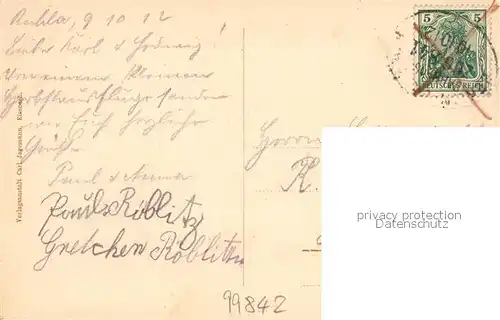 Ruhla, 9 10 12
Liebe Karl & Hedwig
Von einem kleinen
Herbstausfluge senden
wir Euch herzliche
Grüße
Paul & Anna
Pauls Röblitz
Gretchen Röblitz
99842
Herrn
K.
5
DEUTSCHES REICH
privacy protection
Datenschutz
Verlagsanstalt Carl Jagemann, Eisenach